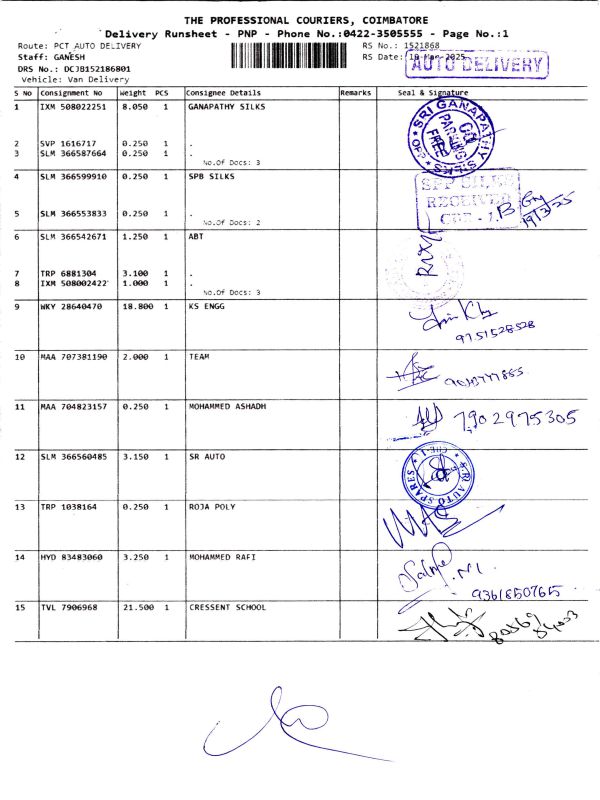 THE PROFESSIONAL COURIERS, COIMBATORE
Delivery Runsheet - PNP - Phone No.:0422-3505555 - Page No.:1
Route: PCT AUTO DELIVERY RS No.: 1521868
Staff: GANESH RS Date: 19-Mar-2025
AUTO DELIVERY
DRS No.: DCJB152186801
Vehicle: Van Delivery
S No Consignment No Weight PCS Consignee Details Remarks Seal & Signature
1 IXM 508022251 8.050 1 GANAPATHY SILKS
SRI GANAPATHY SILKS
2 SVP 1616717 0.250 1 .
3 SLM 366587664 0.250 1 .
No.Of Docs: 3
4 SLM 366599910 0.250 1 SPB SILKS
RECEIVED
5 SLM 366553833 0.250 1 .
19/3/25
No.Of Docs: 2
6 SLM 366542671 1.250 1 ABT
7 TRP 6881304 3.100 1 .
8 IXM 508002422 1.000 1 .
No.Of Docs: 3
9 WKY 28640470 18.800 1 KS ENGG
9751528528
10 MAA 707381190 2.000 1 TEAM
11 MAA 704823157 0.250 1 MOHAMMED ASHADH
7902975305
12 SLM 366560485 3.150 1 SR AUTO
AUTO SPARES
13 TRP 1038164 0.250 1 ROJA POLY
14 HYD 83483060 3.250 1 MOHAMMED RAFI
9361850765
15 TVL 7906968 21.500 1 CRESSENT SCHOOL